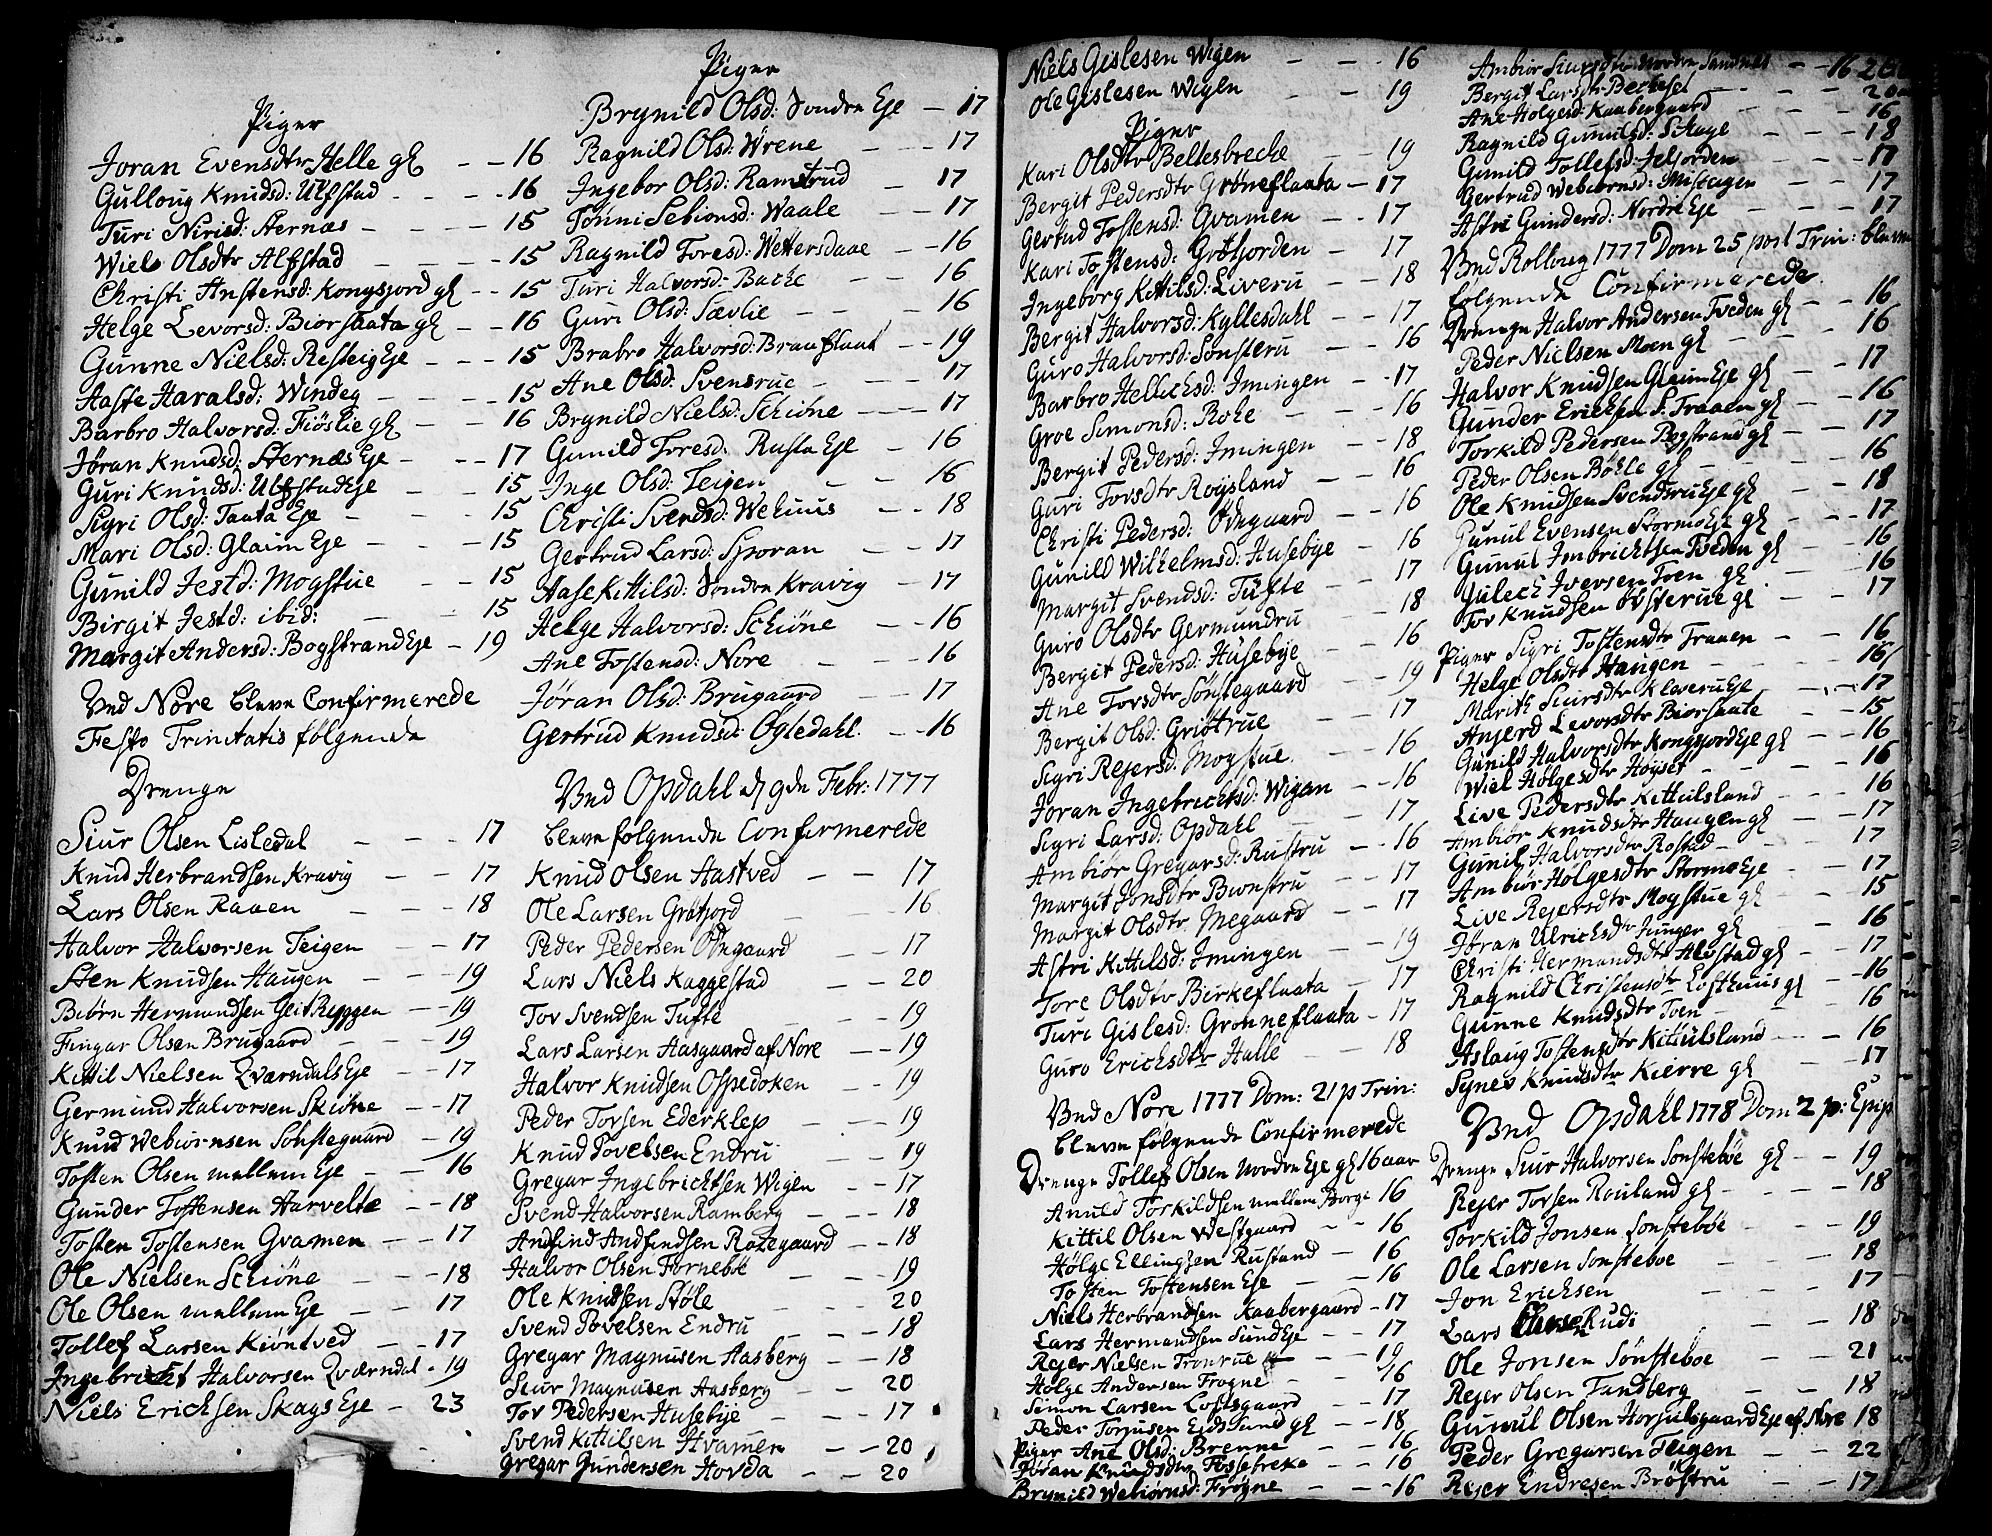 Piger
Joran Evensdtr Helle gl — — 16
Gulloug Knudsd: Ulfstad — — 16
Turi Nirisd: Sternæs — — 15
Wiele Olsdtr Alfstad — — 15
Christi Anstensd: Kongsjord gl — — 15
Helge Levorsd: Biorflaata gl — — 16
Gunne Nielsd: Resteig Eje — — 15
Aaste Haralsd: Windeg — — 15
Barbro Halvorsd: Fiøslie gl — — 16
Jøran Knudsd: Sternæs Eje — — 17
Guri Knudsd: Ulfstad Eje — — 15
Sigri Olsd: Taata Eje — — 15
Mari Olsd: Glaim Eje — — 15
Gunild Jestd: Mogstue — — 15
Birgit Jestd: ibid: — — 15
Margit Andersd: Bogstrand Eje — 19
Ved Nore bleve Confirmerede
Festo Trinitatis følgende
Drenge
Siur Olsen Lisledal — — 17
Knud Herbrandsen Kravig — — 17
Lars Olsen Raaen — — 18
Halvor Halvorsen Teigen — — 17
Sten Knudsen Haugen — — 19
Biørn Hermundsen Geit Ryggen — 19
Fingar Olsen Brugaard — — 19
Kittil Nielsen Qværndals Eje — — 17
Germund Halvorsen Skiøne — — 17
Knud Webiørnsen Sønstegaard — 19
Tosten Olsen mellem Eje — — 16
Gunder Tostensen Harvelte — — 18
Tosten Tostensen Gvamen — — 17
Ole Nielsen Schiøne — — 18
Ole Olsen mellem Eje — — 17
Tollef Larsen Kiøntved — — 17
Ingebricht Halvorsen Qværndal — 19
Niels Erichsen Skags Eje — 23
Piger
Brynild Olsd: Søndre Eje — 17
Ragnild Olsd: Wrene — — 17
Ingebor Olsd: Ramstrud — 17
Tønni Sebionsd: Waale — — 17
Ragnild Toresd: Wettersdaae — — 16
Turi Halvorsd: Bache — — 16
Guri Olsd: Sævlie — — 16
Brabro Halvorsd: Brauflaat — — 19
Ane Olsd: Svensrue — — 17
Brynild Nielsd: Schiøne — — 17
Gunild Toresd: Rusta Eje — 16
Inge Olsd: Teigen — — 16
Christi Svendsd: Wehuus — — 18
Gertrud Larsd: Sporan — — 17
Aase Kittilsd: Søndre Kravig — 17
Helge Halvorsd: Schiøne — — 16
Ane Tostensd: Nore — — 16
Jøran Olsd: Brugaard — — 17
Gertrud Knudsd: Ögledahl. — — 16
Ved Opdahl d 9de Febr: 1777
bleve følgende Confirmerede
Knud Olsen Aastved — — 17
Ole Larsen Grøtjord — — 16
Peder Pedersen Ödegaard — — 17
Lars Niels Kaggestad — 20
Tov Svendsen Tufte — — 19
Lars Larsen Aasgaard af Nore — — 19
Halvor Knudsen Ospedoken — — 19
Peder Torsen Ederklep — — 19
Knud Povelsen Endru — — 19
Gregar Ingebrichtsen Wigen — — 17
Svend Halvorsen Ramberg — — 18
Andfind Andfindsen Rozegaard — — 18
Halvor Olsen Fornebøe — — 19
Ole Knudsen Støle — — 20
Svend Povelsen Endru — — 18
Gregar Magnusen Aasberg — — 18
Siur Magnusen Aasberg — — 20
Tov Pedersen Husebye — — 17
Svend Kittilsen Hvamen — — 20
Gregar Gundersen Hovda — — 20
Niels Gislesen Wigen — — 16
Ole Gislesen Wigen — — 19
Piger
Kari Olsdtr Beltesbreche — — 19
Bergit Pedersdtr Grøneflaata — 17
Gertud Tostensd: Gvamen — — 17
Kari Tostensd: Grøtjorden — — 17
Ingeborg Kittilsd: Liveru — — 18
Bergit Halvorsd: Kyllesdahl — — 17
Guro Halvorsd: Sønsteru — — 16
Barbro Hellichsd: Imingen — — 17
Groe Simonsd: Roke — — 16
Bergit Pedersd: Imingen — — 18
Guri Torsdtr Röysland — — 16
Christi Pedersd: Ödegaard — — 16
Gunild Wilhelmsd: Husebye — — 16
Margit Svendsd: Tufte — — 17
Guro Olsdtr Germundru — — 18
Bergit Pedersd: Husebye — — 16
Ane Torsdtr Sønstegaard — — 19
Bergit Olsd: Grøtrue — — 17
Sigri Rejersd: Mogstue — — 16
Joran Ingebrichtsd: Wigan — — 16
Sigri Larsd: Opdahl — — 17
Ambiør Gregarsd: Rustru — — 16
Margit Jonsdtr Bionstru — — 17
Margit Olsdtr Megaard — — 17
Astri Kittilsd: Imingen — — 19
Tore Olsdtr Birkeflaata — — 17
Turi Gislesd: Grønneflaata — 17
Guro Erichsdtr Halle — — 18
Ved Nore 1777 Dom: 21 p Trin:
bleve følgende Confirmerede
Drenge Tollef Olsen Nordre Eje gl 16 aar
Anuld Torkildsen mellem Borge 16
Kittil Olsen Westgaard — — 16
Hølge Ellingsen Rustand — — 16
Tosten Tostensen Eje — — 16
Niels Herbrandsen Kaabergaard — 17
Lars Hermandsen Sund Eje — — 17
Rejer Nielsen Tronrue — — 19
Hølge Andersen Frogne — — 16
Simon Larsen Loftsgaard — — 17
Peder Torjusen Eidsund gl — — 18
Piger Ane Olsd: Brenne — — 16
Jøran Knudsdtr Fossebreke — — 16
Brynild Webiørnsd: Frøgne — — 16
Ambiør Siursdtr Nordre Sandnes — — 16
Bergit Larsdtr Beckesel — —
Ane Holgesd: Kaabergaard — — 16
Ragnild Gunulsd: Schage — — 18
Gunild Tollefsd: Jelforden — — 17
Gertrud Webiørnsd: Misteigen — — 17
Astri Gundersd: Nordre Eje — — 17
Ved Rolloug 1777 Dom 25 post Trin: bleve
følgende Confirmerede.
Drenge Halvor Andersen Tveden gl — — 16
Peder Nielsen Moen gl — — 16
Halvor Knudsen Glaim Eje gl — — 17
Gunder Erichsen S. Traaen gl — — 16
Torkild Pedersen Bogstrand gl — — 17
Peder Olsen Bøhle gl — — 16
Ole Knudsen Svendsru Eje gl — — 18
Gunul Evensen Stormo Eje gl — — 17
Gunul Imbrichtsen Tveden gl — — 16
Gulech Iversen Toen gl — — 16
Tov Knudsen Øvsterue gl — — 17
Piger Sigri Tostensdtr Traaen — — 16
Helge Olsdtr Haugen — — 16
Marith Siursdtr Klaveru Eje — — 17
Anjerd Levorsdtr Biorflaate — — 15
Gunild Halvorsdtr Kongsjord Eje gl — 16
Wiel Hølgesdtr Høyset — — 16
Live Pedersdtr Kittulsland — — 16
Ambiør Knudsdtr Haugen gl — — 17
Gunil Halvorsdtr Rostad — — 17
Ambiør Holgesdtr Stormo Eje — — 17
Live Rejersdtr Mogstue gl — — 15
Jøran Ulrichsdtr Junger gl — — 16
Christi Hermandsdtr Alvstad gl — 17
Ragnild Christensdtr Lofthuus gl — 16
Gunne Knudsdtr Toen — — 16
Aslaug Tostensdtr Kittulsland — — 16
Synev Knudsdtr Kierre gl — — 17
Ved Opdahl 1778 Dom 2 p: Epip
Drenge Siur Halvorsen Sønstebøe gl — — 19
Rejer Torsen Rouland gl — — 18
Torkild Jonsen Sønstebøe — — 19
Ole Larsen Sønsteboe — — 18
Jon Erichsen — — 17
Lars Rudi — — 18
Ole Jonsen Sønsteboe — — 21
Rejer Olsen Tandberg — — 18
Gunul Olsen Horjulsgaard Eje af Nore 18
Peder Gregarsen Teigen — — 22
Rejer Endresen Brøstru — — 17